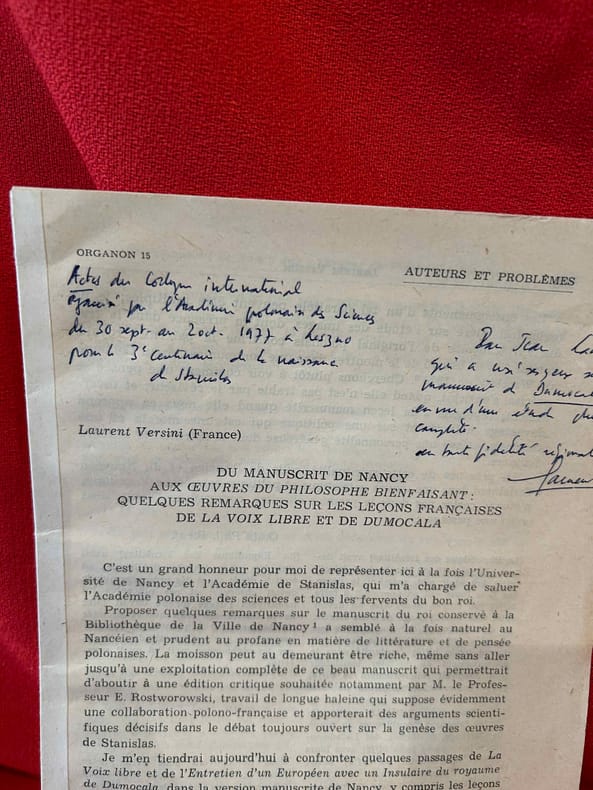 ORGANON 15
AUTEURS ET PROBLÈMES
Actes du Colloque international
organisé par l'Académie polonaise des Sciences
du 30 sept. au 2 oct. 1977 à Leszno
pour le 3e centenaire de la naissance
de Stanislas
Pour Jean
qui a
manuscrit de Dumocala
en vue d'une étude plus
complète.
en toute fidélité régional
Laurent Versini (France)
DU MANUSCRIT DE NANCY
AUX ŒUVRES DU PHILOSOPHE BIENFAISANT :
QUELQUES REMARQUES SUR LES LEÇONS FRANÇAISES
DE LA VOIX LIBRE ET DE DUMOCALA
C'est un grand honneur pour moi de représenter ici à la fois l'Univer-
sité de Nancy et l'Académie de Stanislas, qui m'a chargé de saluer
l'Académie polonaise des sciences et tous les fervents du bon roi.
Proposer quelques remarques sur le manuscrit du roi conservé à la
Bibliothèque de la Ville de Nancy 1 a semblé à la fois naturel au
Nancéien et prudent au profane en matière de littérature et de pensée
polonaises. La moisson peut au demeurant être riche, même sans aller
jusqu'à une exploitation complète de ce beau manuscrit qui permettrait
d'aboutir à une édition critique souhaitée notamment par M. le Profes-
seur E. Rostworowski, travail de longue haleine qui suppose évidemment
une collaboration polono-française et apporterait des arguments scienti-
fiques décisifs dans le débat toujours ouvert sur la genèse des œuvres
de Stanislas.
Je m'en tiendrai aujourd'hui à confronter quelques passages de La
Voix libre et de l'Entretien d'un Européen avec un Insulaire du royaume
de Dumocala, dans la version manuscrite de Nancy, y compris les leçons